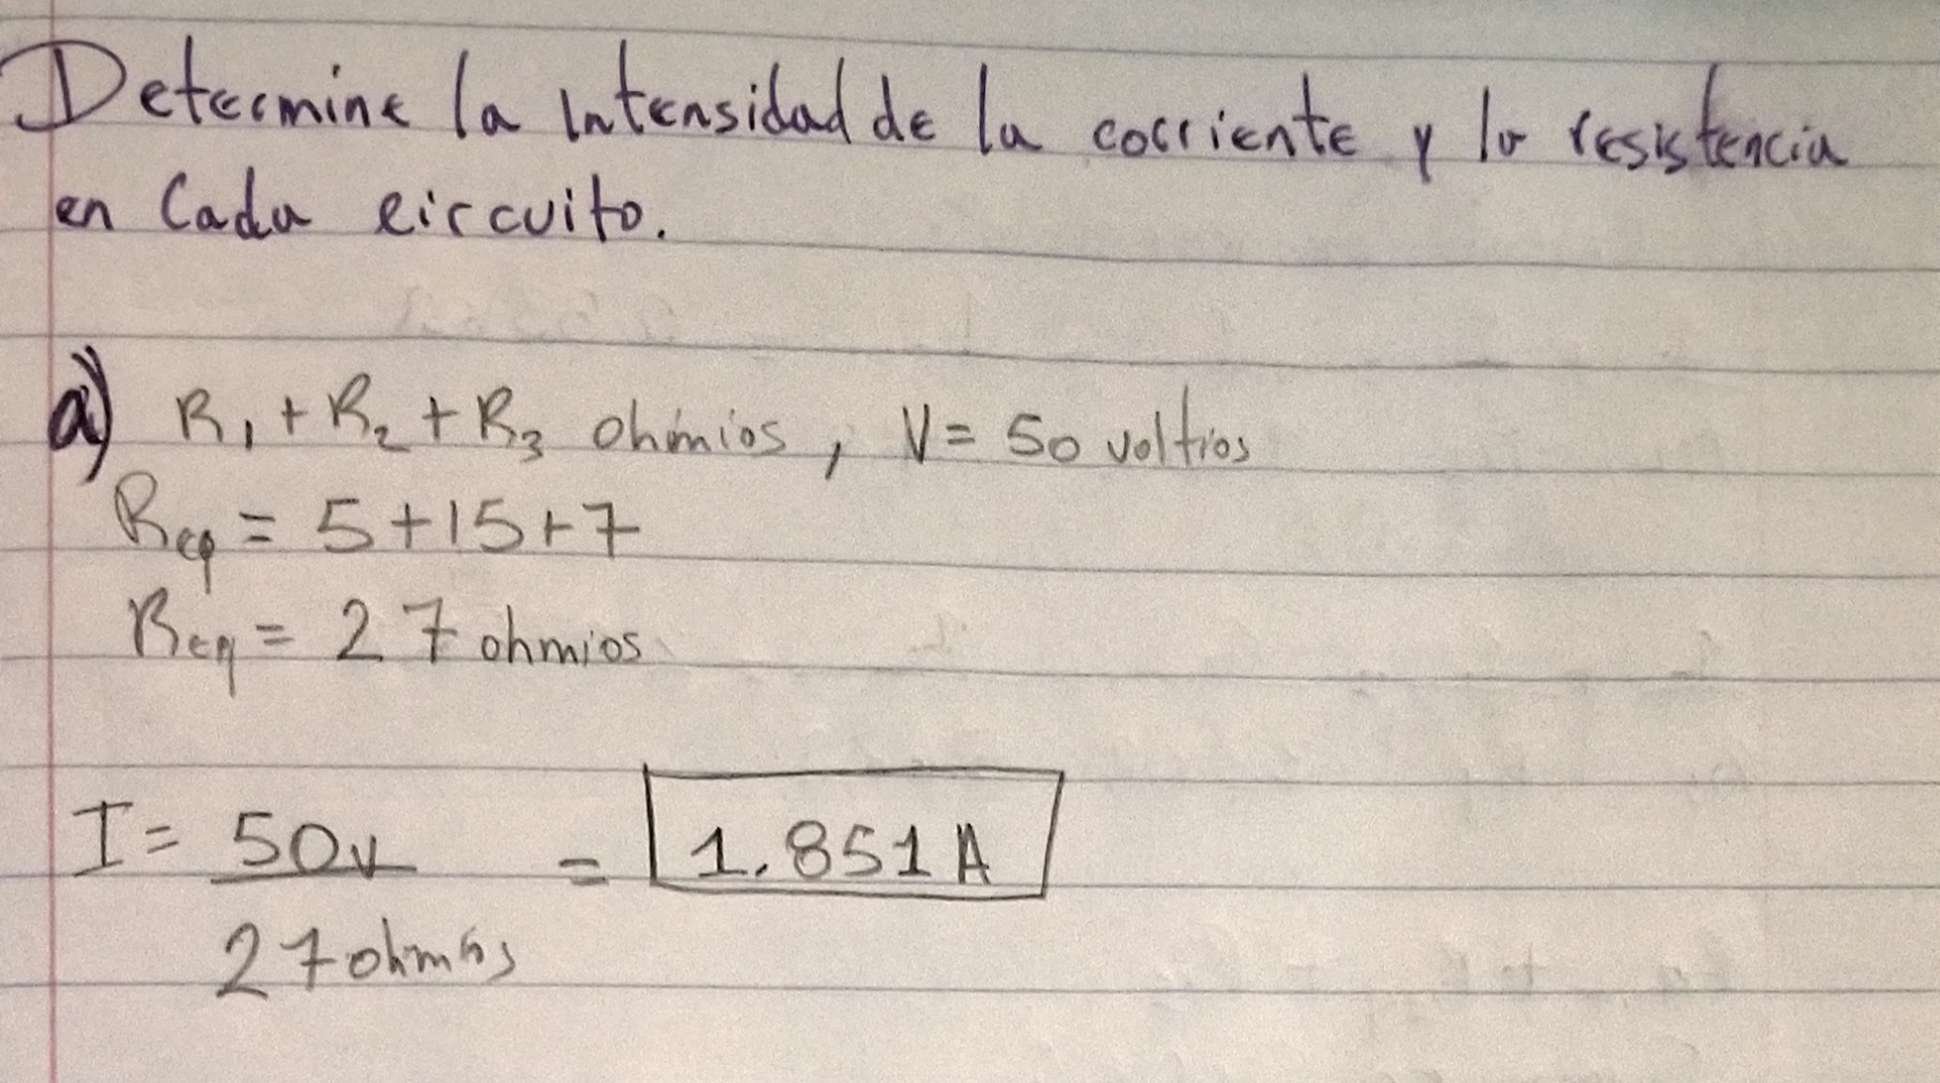 Determine la intensidad de la corriente y la resistencia
en Cada circuito.
a) R₁ + R₂ + R₃ ohmios, V = 50 voltios
Req = 5+15+7
Req = 27 ohmios
I = 50v / 27 ohmios = 1.851 A